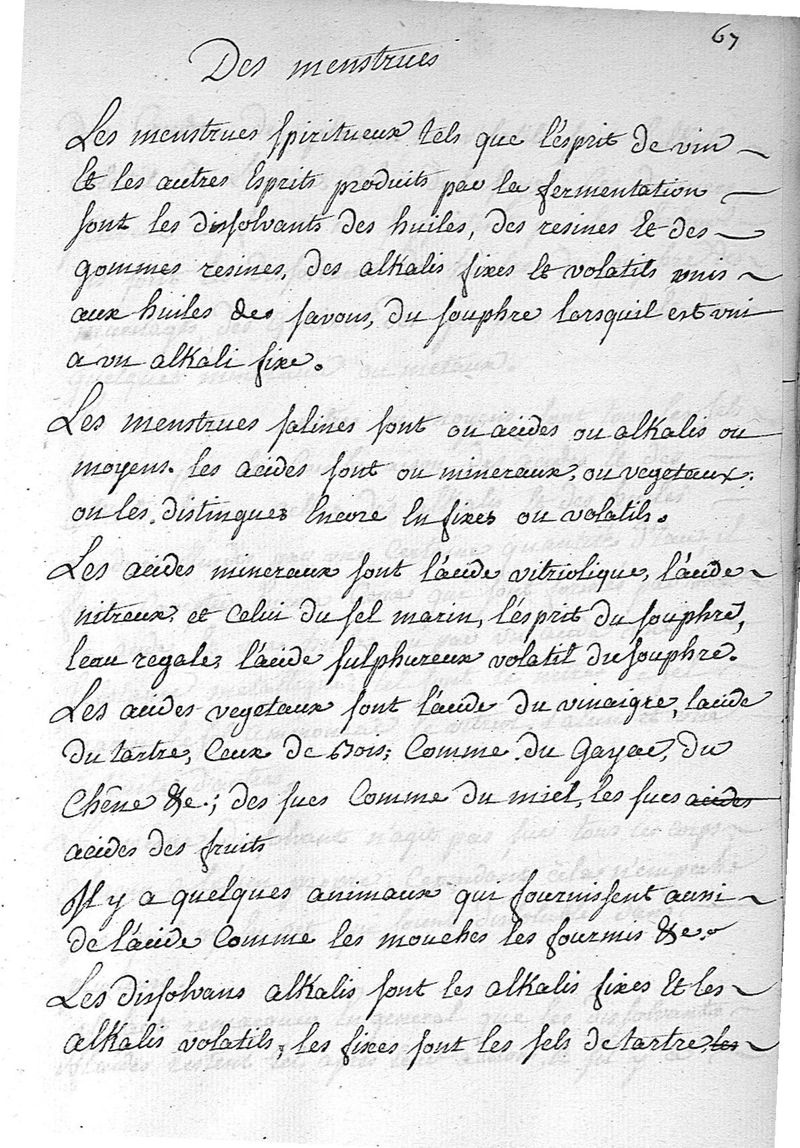 67
Des menstrues
Les menstrues spiritueux tels que l'esprit de vin
Et les autres Esprits produits par la fermentation
sont les dissolvants des huiles, des resines Et des
gommes resines, des alkalis fixes Et volatils unis
aux huiles des savons, du souphre lorsquil est uni
a un alkali fixe.
Les menstrues salines sont ou acides ou alkalis ou
moyens. les acides sont ou mineraux, ou vegetaux.
on les distingues Encore En fixes ou volatils.
Les acides mineraux sont l'acide vitriolique, l'acide
nitreux, et celui du sel marin, l'esprit du souphre,
leau regale, l'acide sulphureux volatil du souphre.
Les acides vegetaux sont l'acide du vinaigre, lacide
du tartre, Ceux de Bois, Comme du Gayac, du
Chêne &c.; des sucs Comme du miel, les sucs acides
acides des fruits
Il y a quelques animaux qui fournissent aussi
de l'acide Comme les mouches les fourmis &c.
Les dissolvans alkalis sont les alkalis fixes Et les
alkalis volatils, les fixes sont les sels de tartre, les